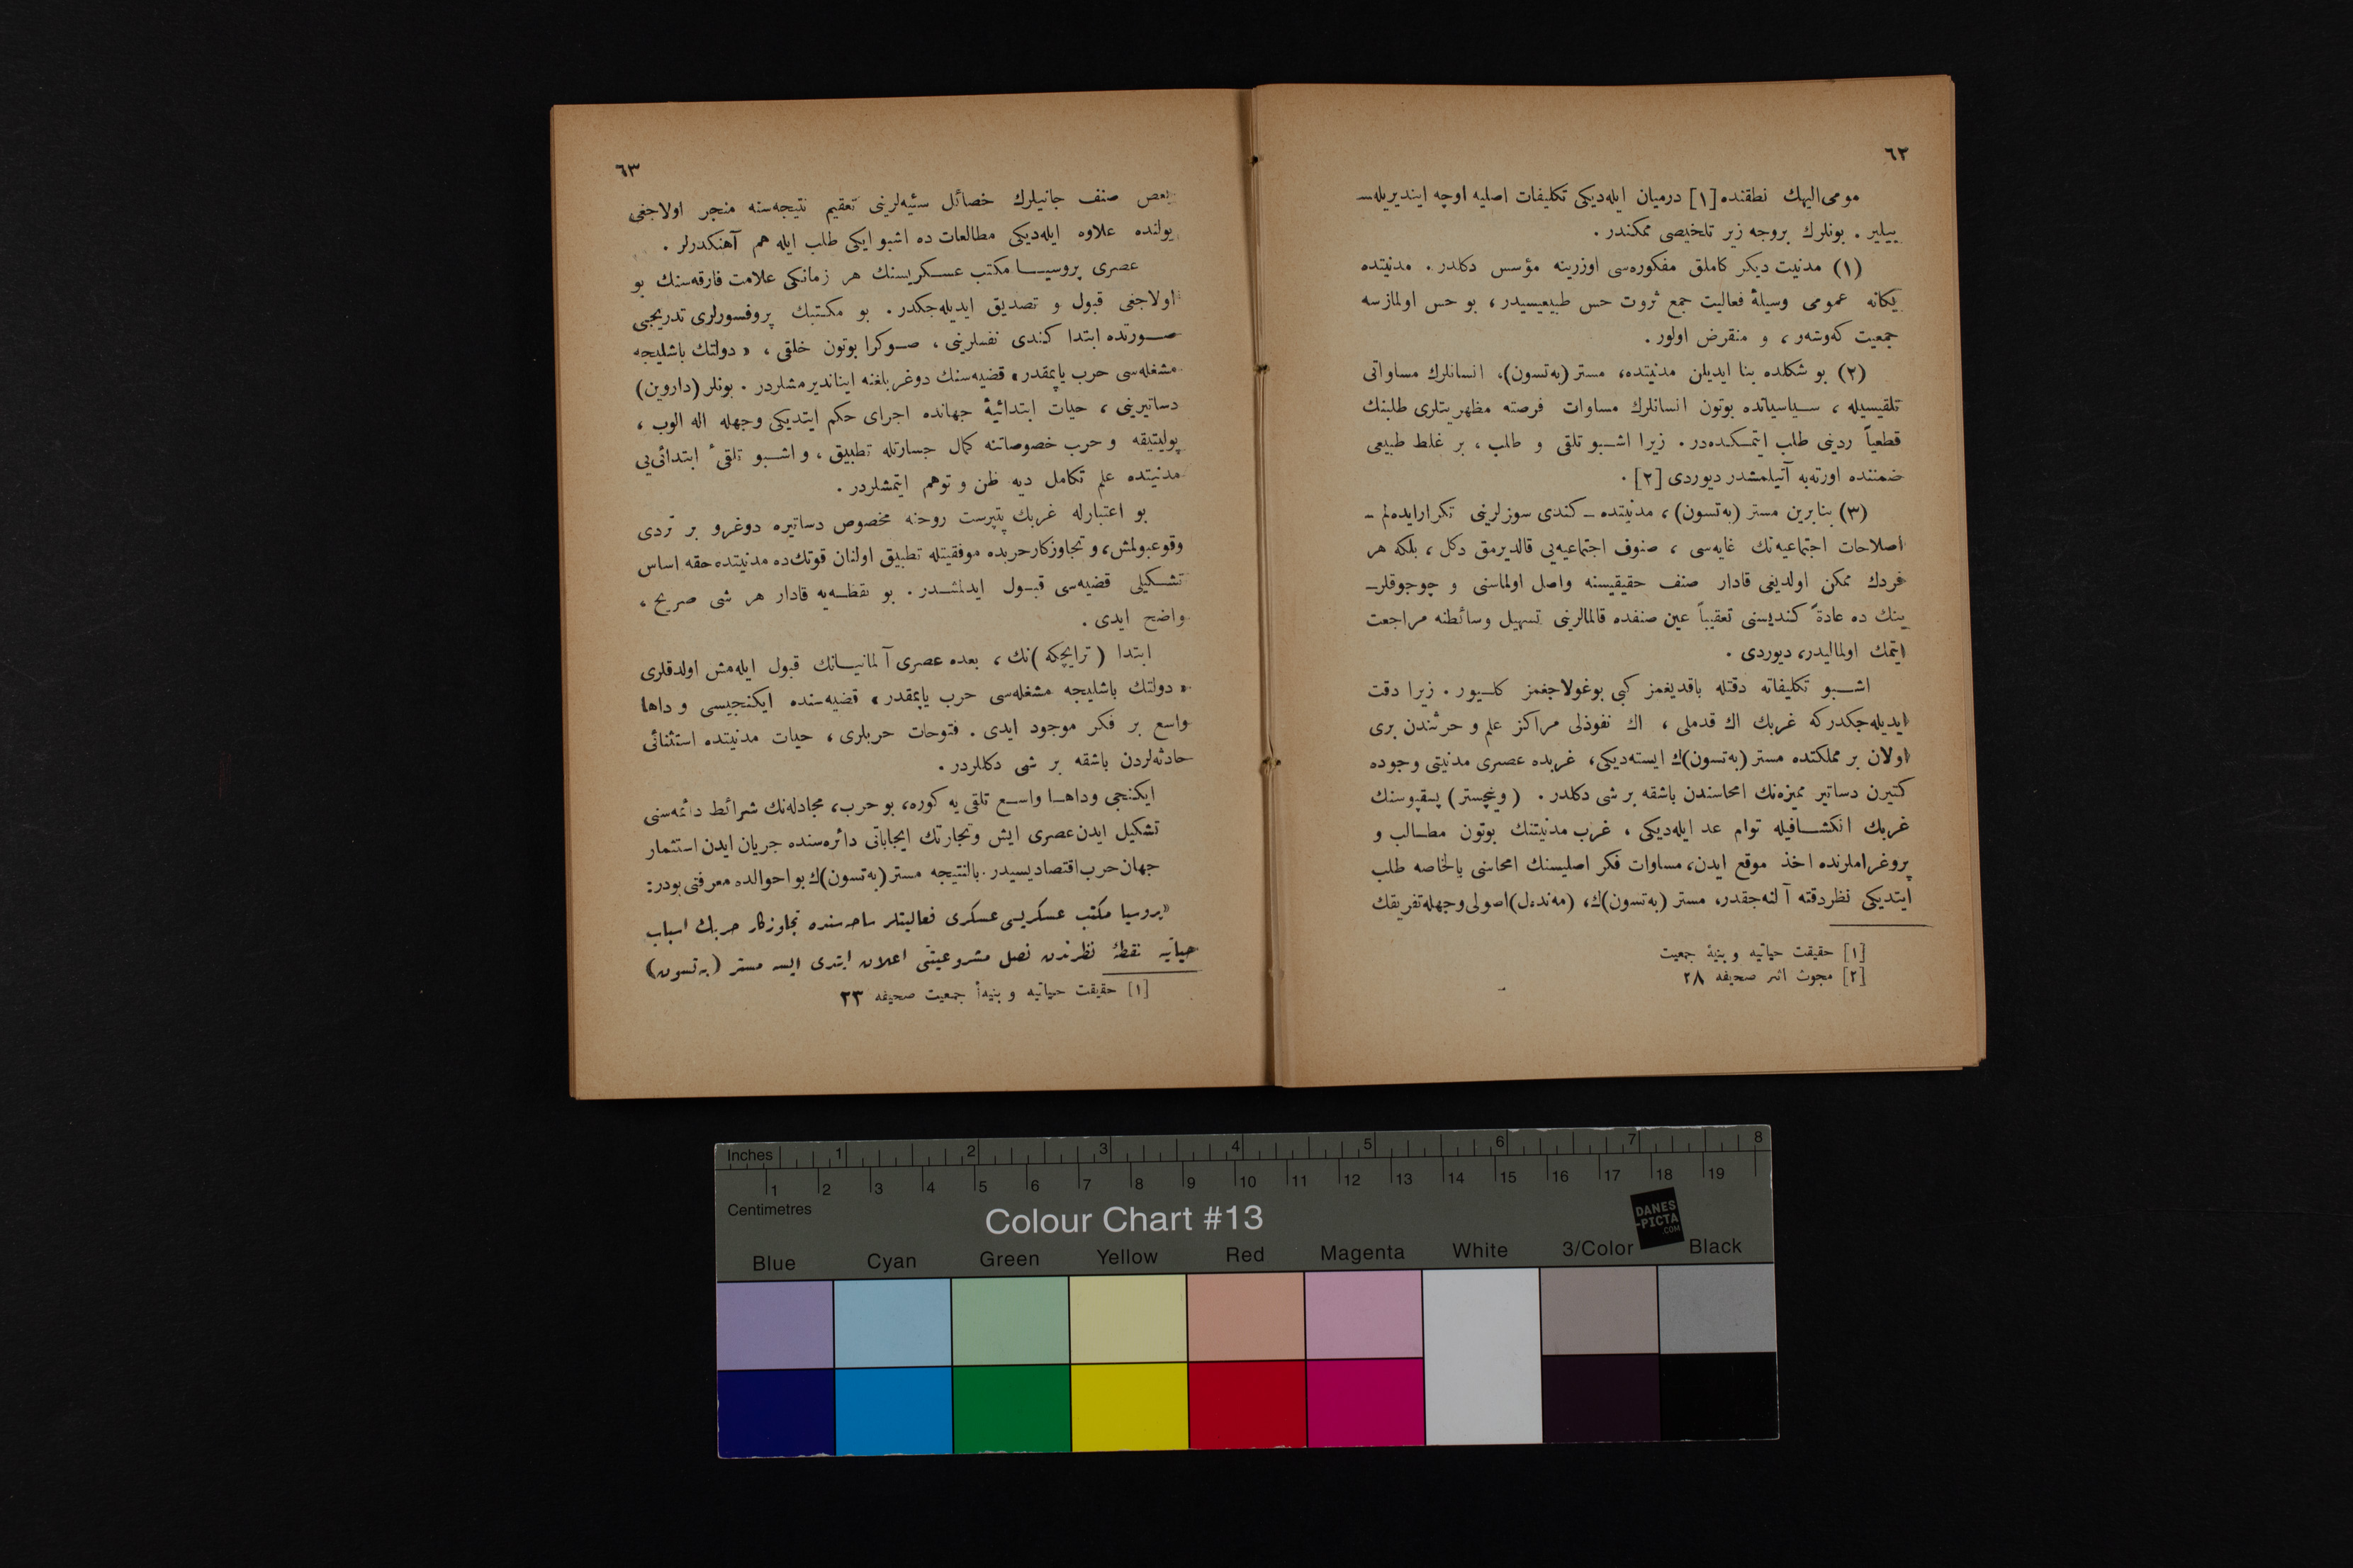 ٦٢
مومی‌الیهك نطقنده [١] درمیان ایله‌دیكی تكلیفات اصلیه اوچه ایندیریله‌ـ
بیلیر . بونلرك بروجه زیر تلخیصی ممكندر .
(١) مدنیت دیكر كاملق مفكوره‌سی اوزرینه مؤسس دكلدر . مدنیتده
یكانه عمومی وسیلهٔ فعالیت جمع ثروت حس طبیعیسیدر ، بو حس اولمازسه
جمعیت كه‌وشه‌ر ، و منقرض اولور .
(٢) بو شكلده بنا ایدیلن مدنیتده، مستر (به‌تسون)، انسانلرك مساواتی
تلقیسیله ، سیاسیاتده بوتون انسانلرك مساوات فرصته مظهریتلری طلبنك
قطعیاً ردینی طلب ایتمكده‌در . زیرا اشبو تلقی و طلب ، بر غلط طبیعی
ضمننده اورته‌یه آتیلمشدر دیوردی [٢] .
(٣) بنابرین مستر (به‌تسون) ، مدنیتده ـ كندی سوزلرینی تكرارایده‌لم ـ
اصلاحات اجتماعیه‌نك غایه‌سی ، صنوف اجتماعیه‌یی قالدیرمق دكل ، بلكه هر
فردك ممكن اولدیغی قادار صنف حقیقیسنه واصل اولماسنی و چوجوقلرـ
ینك ده عادةً كندیسنی تعقیباً عین صنفده قالمالرینی تسهیل وسائطنه مراجعت
ایتمك اولمالیدر، دیوردی .
اشبو تكلیفاته دقتله باقدیغمز كبی بوغولاجغمز كلیور . زیرا دقت
ایدیله‌جكدركه غربك اك قدملی ، اك نفوذلی مراكز علم و حرثندن بری
اولان بر مملكتده مستر (به‌تسون)ك ایسته‌دیكی، غربده عصری مدنیتی وجوده
كتیرن دساتیر ممیزه‌نك امحاسندن باشقه بر شی دكلدر . (وینچستر) پسقپوسنك
غربك انكشافیله توأم عد ایله‌دیكی ، غرب مدنیتنك بوتون مطالب و
پروغراملرنده اخذ موقع ایدن، مساوات فكر اصلیسنك امحاسنی بالخاصه طلب
ایتدیكی نظردقته آلنه‌جقدر، مستر (به‌تسون)ك، (مه‌ندل)اصولی‌وجهله‌تفریقك
[١] حقیقت حیاتیه و بنیهٔ جمعیت
[٢] مبحوث اثر صحیفه ٢٨
٦٣
بعض صنف جانیلرك خصائل سئیه‌لرینی تعقیم نتیجه‌سنه منجر اولاجغی
یولنده علاوه ایله‌دیكی مطالعات ده اشبو ایكی طلب ایله هم آهنكدرلر .
عصری پروسیا مكتب عسكریسنك هر زمانكی علامت فارقه‌سنك بو
اولاجغی قبول و تصدیق ایدیله‌جكدر . بو مكتبك پروفسورلری تدریجی
صورتده ابتدا كندی نفسلرینی ، صوكرا بوتون خلقی ، « دولتك باشلیجه
مشغله‌سی حرب یاپمقدر » قضیه‌سنك دوغریلغنه ایناندیرمشلردر . بونلر (داروین)
دساتیرینی ، حیات ابتدائیهٔ جهانده اجرای حكم ایتدیكی وجهله اله الوب ،
پولیتیقه و حرب خصوصاتنه كمال جسارتله تطبیق ، و اشبو تلقیٔ ابتدائی‌یی
مدنیتده علم تكامل دیه ظن و توهم ایتمشلردر .
بو اعتبارله غربك پتپرست روحنه مخصوص دساتیره دوغرو بر تردی
وقوعبولمش، و تجاوزكارحربده موفقیتله تطبیق اولنان قوتك‌ده مدنیتده حقه اساس
تشكیلی قضیه‌سی قبول ایدلمشدر . بو نقطه‌یه قادار هر شی صریح ،
واضح ایدی .
ابتدا ( ترایچكه )نك ، بعده عصری آلمانیانك قبول ایله‌مش اولدقلری
« دولتك باشلیجه مشغله‌سی حرب یاپمقدر » قضیه‌سنده ایكنجیسی و داها
واسع بر فكر موجود ایدی . فتوحات حربلری ، حیات مدنیتده استثنائی
حادثه‌لردن باشقه بر شی دكللردر .
ایكنجی وداها واسع تلقی یه كوره، بو حرب، مجادله‌نك شرائط دائمه‌سنی
تشكیل ایدن عصری ایش وتجارتك ایجاباتی دائره‌سنده جریان ایدن استثمار
جهان‌حرب‌اقتصادیسیدر. بالنتیجه مستر (به‌تسون)ك بو احوالده معرفتی بودر:
« پروسیا مكتب عسكریسی عسكری فعالیتلر ساحه‌سنده تجاوزكار حربك اسباب
حیاتیه نقطهٔ نظرندن نصل مشروعیتنی اعلان ایتدی ایسه مستر (به‌تسون)
[١] حقیقت حیاتیه و بنیهٔ جمعیت صحیفه ٢٣
Inches 1 2 3 4 5 6 7 8
1 2 3 4 5 6 7 8 9 10 11 12 13 14 15 16 17 18 19
Centimetres
Colour Chart #13
DANES
-PICTA
.COM
Blue Cyan Green Yellow Red Magenta White 3/Color Black